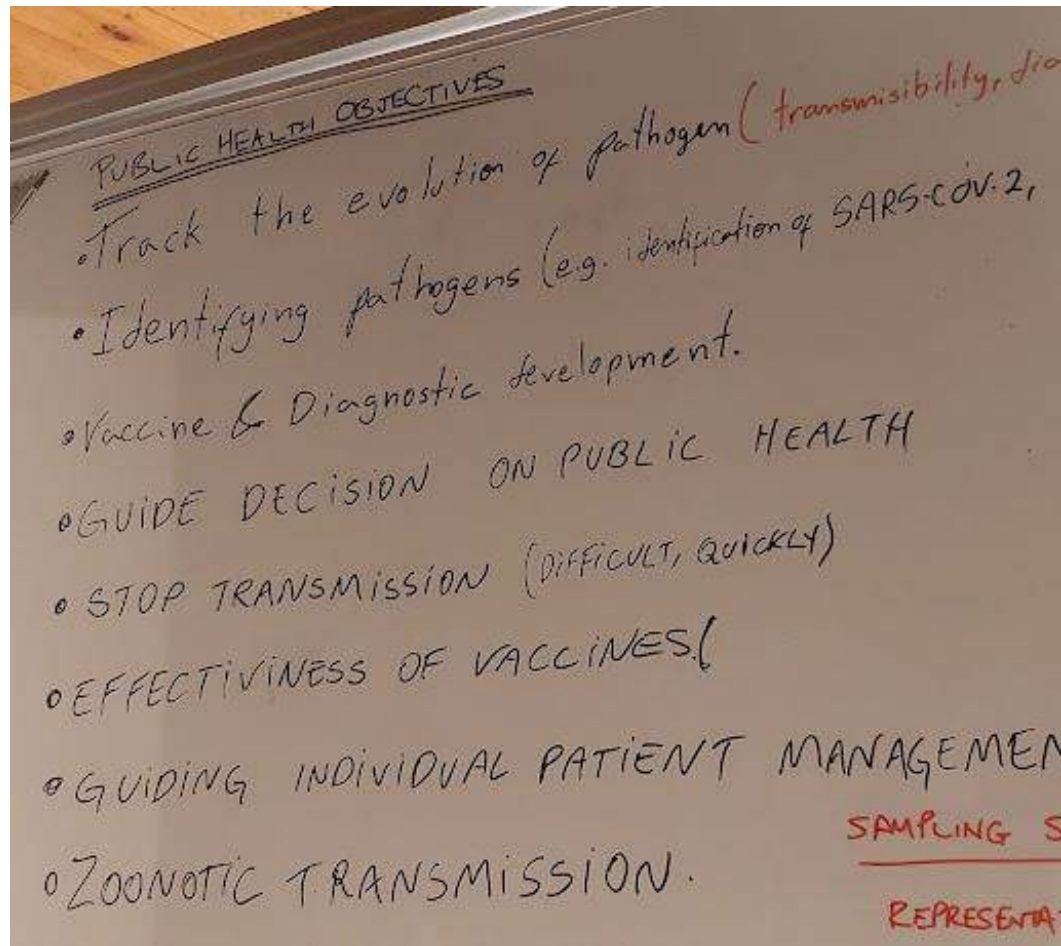 PUBLIC HEALTH OBJECTIVES
• Track the evolution of pathogen (transmisibility, dia
• Identifying pathogens (e.g. identification of SARS-COV-2,
• Vaccine & Diagnostic development.
• GUIDE DECISION ON PUBLIC HEALTH
• STOP TRANSMISSION (DIFFICULT, QUICKLY)
• EFFECTIVINESS OF VACCINES (
• GUIDING INDIVIDUAL PATIENT MANAGEMEN
SAMPLING S
• ZOONOTIC TRANSMISSION.
REPRESENTA